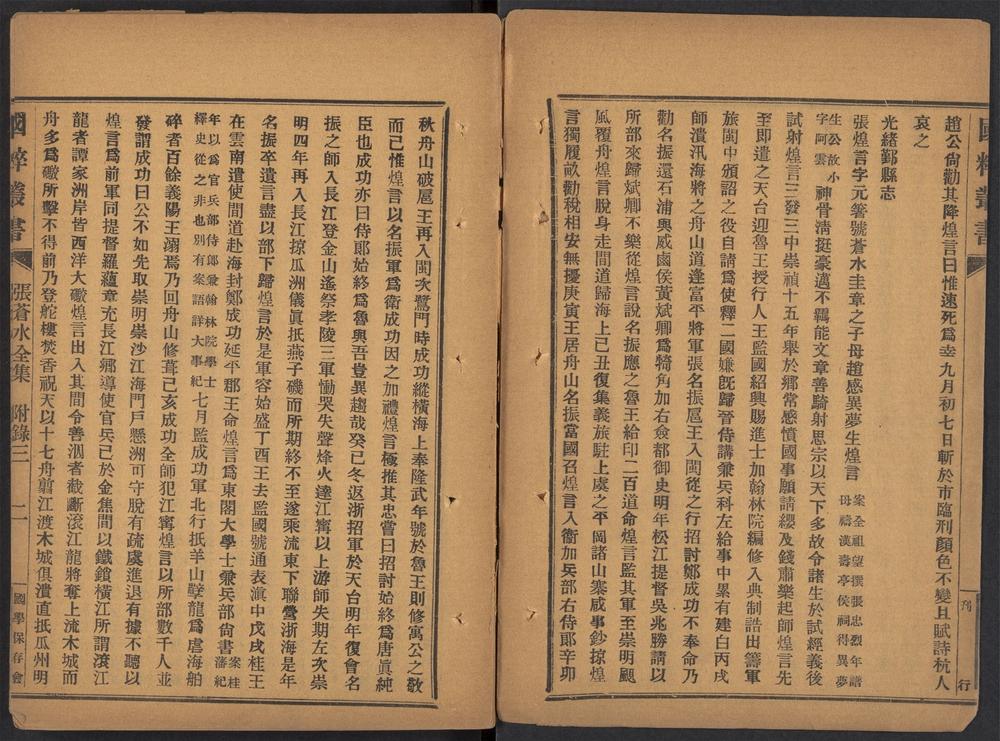 國粹叢書
刊行
趙公尙勸其降煌言曰惟速死爲幸九月初七日斬於市臨刑顏色不變且賦詩杭人
哀之
光緒鄞縣志
張煌言字元箸號蒼水圭章之子母趙感異夢生煌言案全祖望撰張忠烈年譜母禱漢壽亭侯祠得異夢
生公故小字阿雲神骨淸挺豪邁不羈能文章善騎射思宗以天下多故令諸生於試經義後
試射煌言三發三中崇禎十五年舉於鄕常感憤國事願請纓及錢肅樂起師煌言先
至卽遣之天台迎魯王授行人王監國紹興賜進士加翰林院編修入典制誥出籌軍
旅閩中頒詔之役自請爲使釋二國嫌旣歸晉侍講兼兵科左給事中累有建白丙戌
師潰汎海將之舟山道逢富平將軍張名振扈王入閩從之行招討鄭成功不奉命乃
勸名振還石浦與威鹵侯黃斌卿爲犄角加右僉都御史明年松江提督吳兆勝請以
所部來歸斌卿不樂從煌言說名振應之魯王給印二百道命煌言監其軍至崇明颶
風覆舟煌言脫身走間道歸海上己丑復集義旅駐上虞之平岡諸山寨咸事鈔掠煌
言獨履畝勸稅相安無擾庚寅王居舟山名振當國召煌言入衞加兵部右侍郞辛卯
秋舟山破扈王再入閩次鷺門時成功縱橫海上奉隆武年號於魯王則修寓公之敬
而已惟煌言以名振軍爲衞成功因之加禮煌言極推其忠嘗曰招討始終爲唐眞純
臣也成功亦曰侍郞始終爲魯與吾豈異趨哉癸巳冬返浙招軍於天台明年復會名
振之師入長江登金山遙祭孝陵三軍慟哭失聲烽火達江甯以上游師失期左次崇
明四年再入長江掠瓜洲儀眞抵燕子磯而所期終不至遂乘流東下聯營浙海是年
名振卒遺言盡以部下歸煌言於是軍容始盛丁酉王去監國號通表滇中戊戌桂王
在雲南遣使間道赴海封鄭成功延平郡王命煌言爲東閣大學士兼兵部尙書案桂藩紀
年以爲官兵部侍郞兼翰林院學士釋史從之非也別有案語詳大事紀七月監成功軍北行抵羊山孽龍爲虐海舶
碎者百餘義陽王溺焉乃回舟山修葺己亥成功全師犯江甯煌言以所部數千人並
發謂成功曰公不如先取崇明崇沙江海門戶懸洲可守脫有疏虞進退有據不聽以
煌言爲前軍同提督羅蘊章充長江鄕導使官兵已於金焦間以鐵鎖橫江所謂滾江
龍者譚家洲岸皆西洋大礮煌言出入其間令善泅者截斷滾江龍將奪上流木城而
舟多爲礮所擊不得前乃登舵樓焚香祝天以十七舟翦江渡木城俱潰直抵瓜州明
國粹叢書
張蒼水全集 附錄三
二
國學保存會